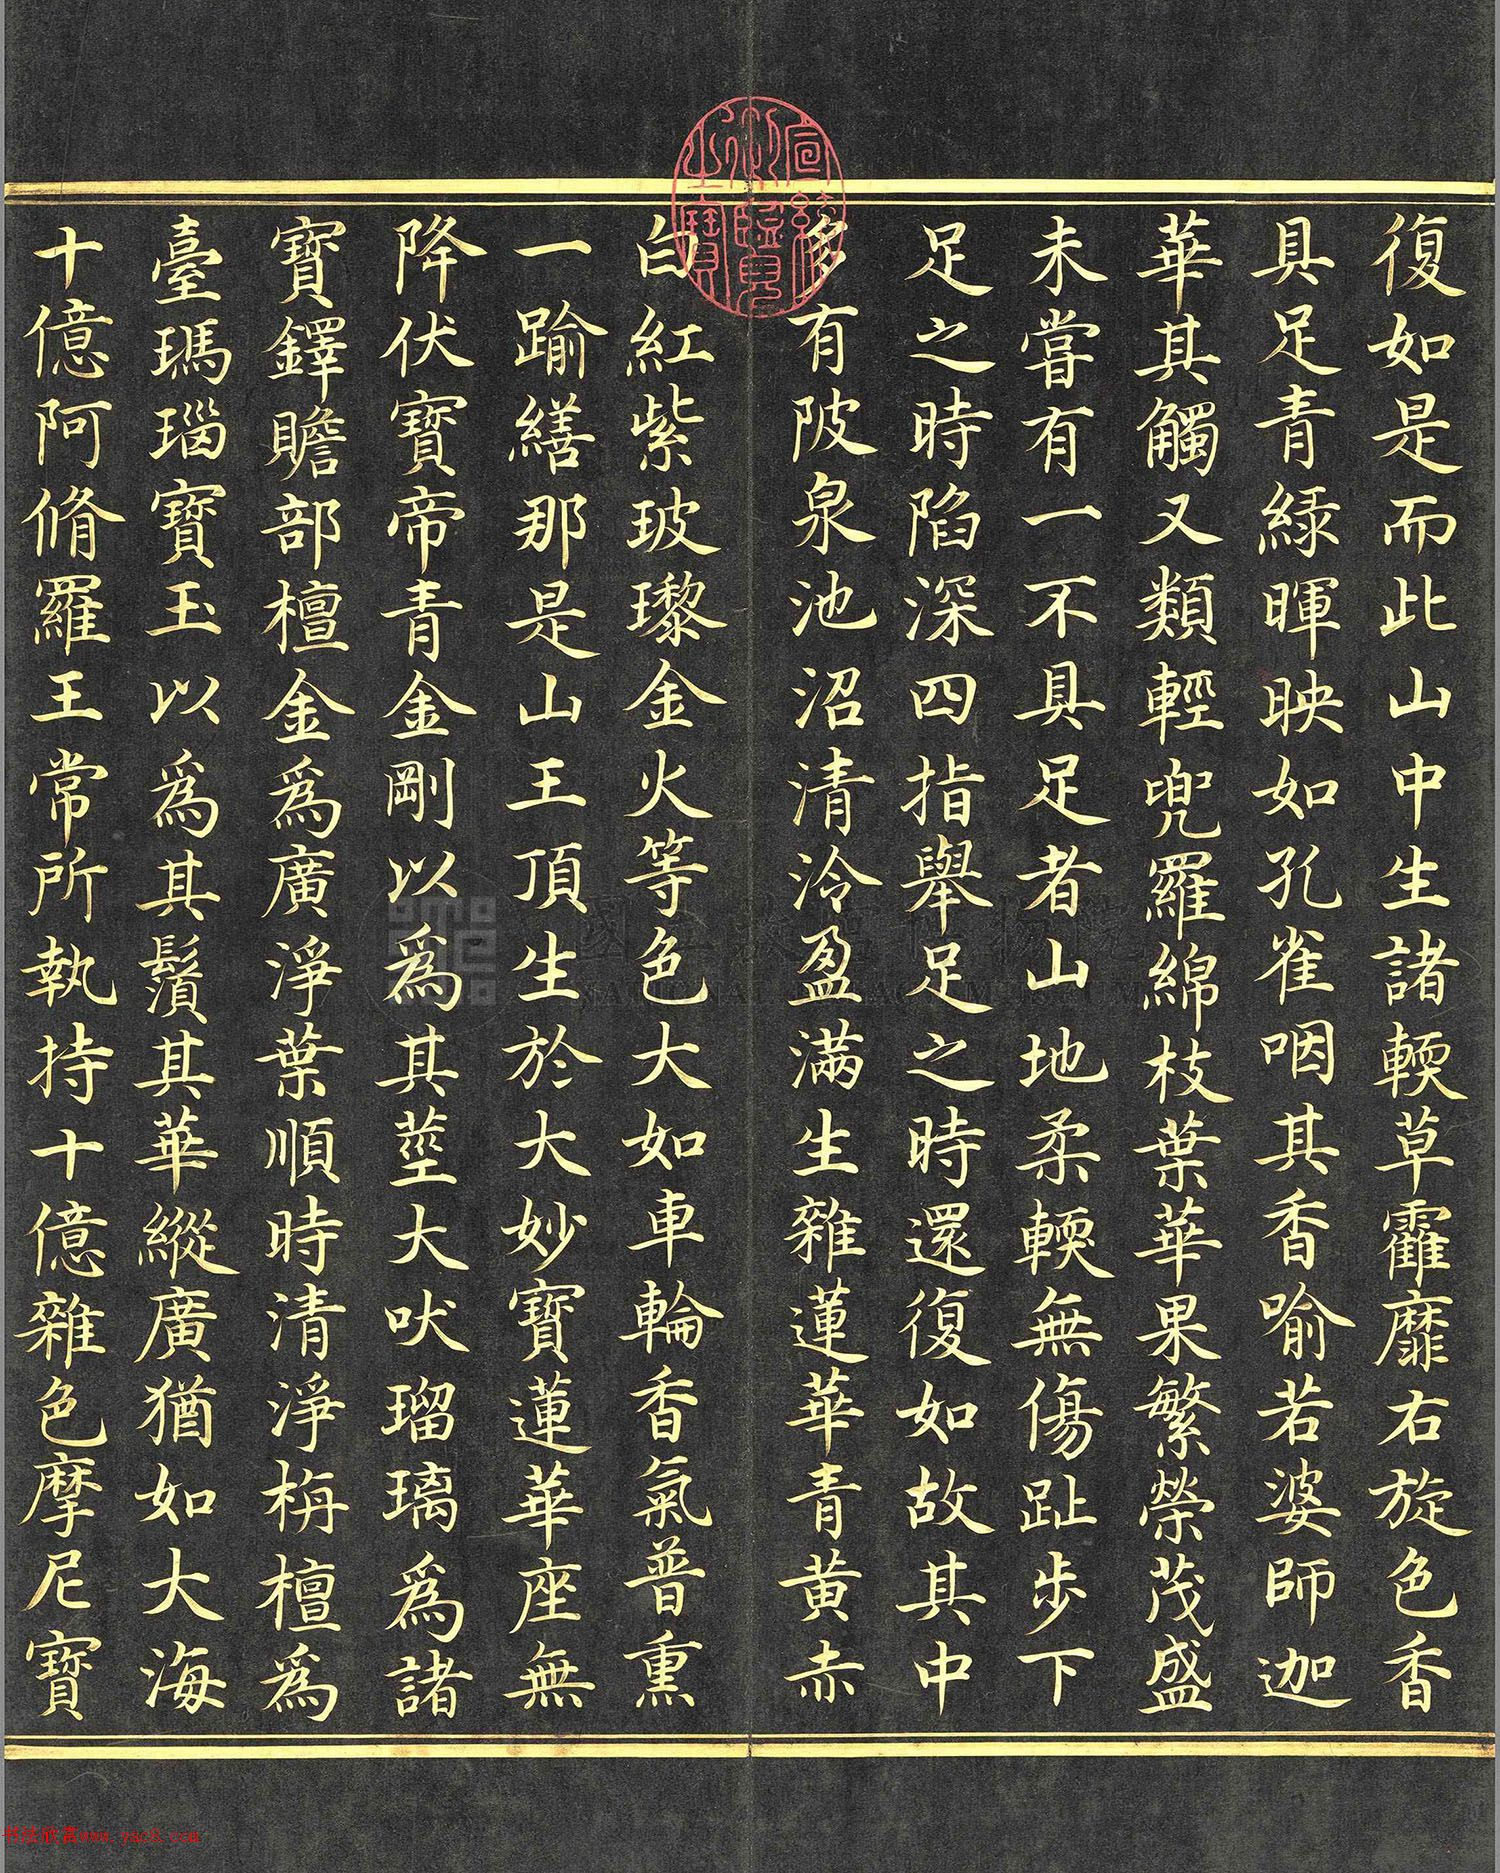 復如是而此山中生諸輭草靃靡右旋色香
具足青綠暉映如孔雀咽其香喻若婆師迦
華其觸又類輕兜羅綿枝葉華果繁榮茂盛
未嘗有一不具足者山地柔輭無傷趾步下
足之時陷深四指舉足之時還復如故其中
多有陂泉池沼清泠盈滿生雜蓮華青黃赤
白紅紫玻瓈金火等色大如車輪香氣普熏
一踰繕那是山王頂生於大妙寶蓮華座無
降伏寶帝青金剛以為其莖大吠瑠璃為諸
寶鐸贍部檀金為廣淨葉順時清淨栴檀為
臺瑪瑙寶玉以為其鬚其華縱廣猶如大海
十億阿脩羅王常所執持十億雜色摩尼寶
宣統御覽之寶
NATIONAL PALACE MUSEUM
书法欣赏www.yac8.com